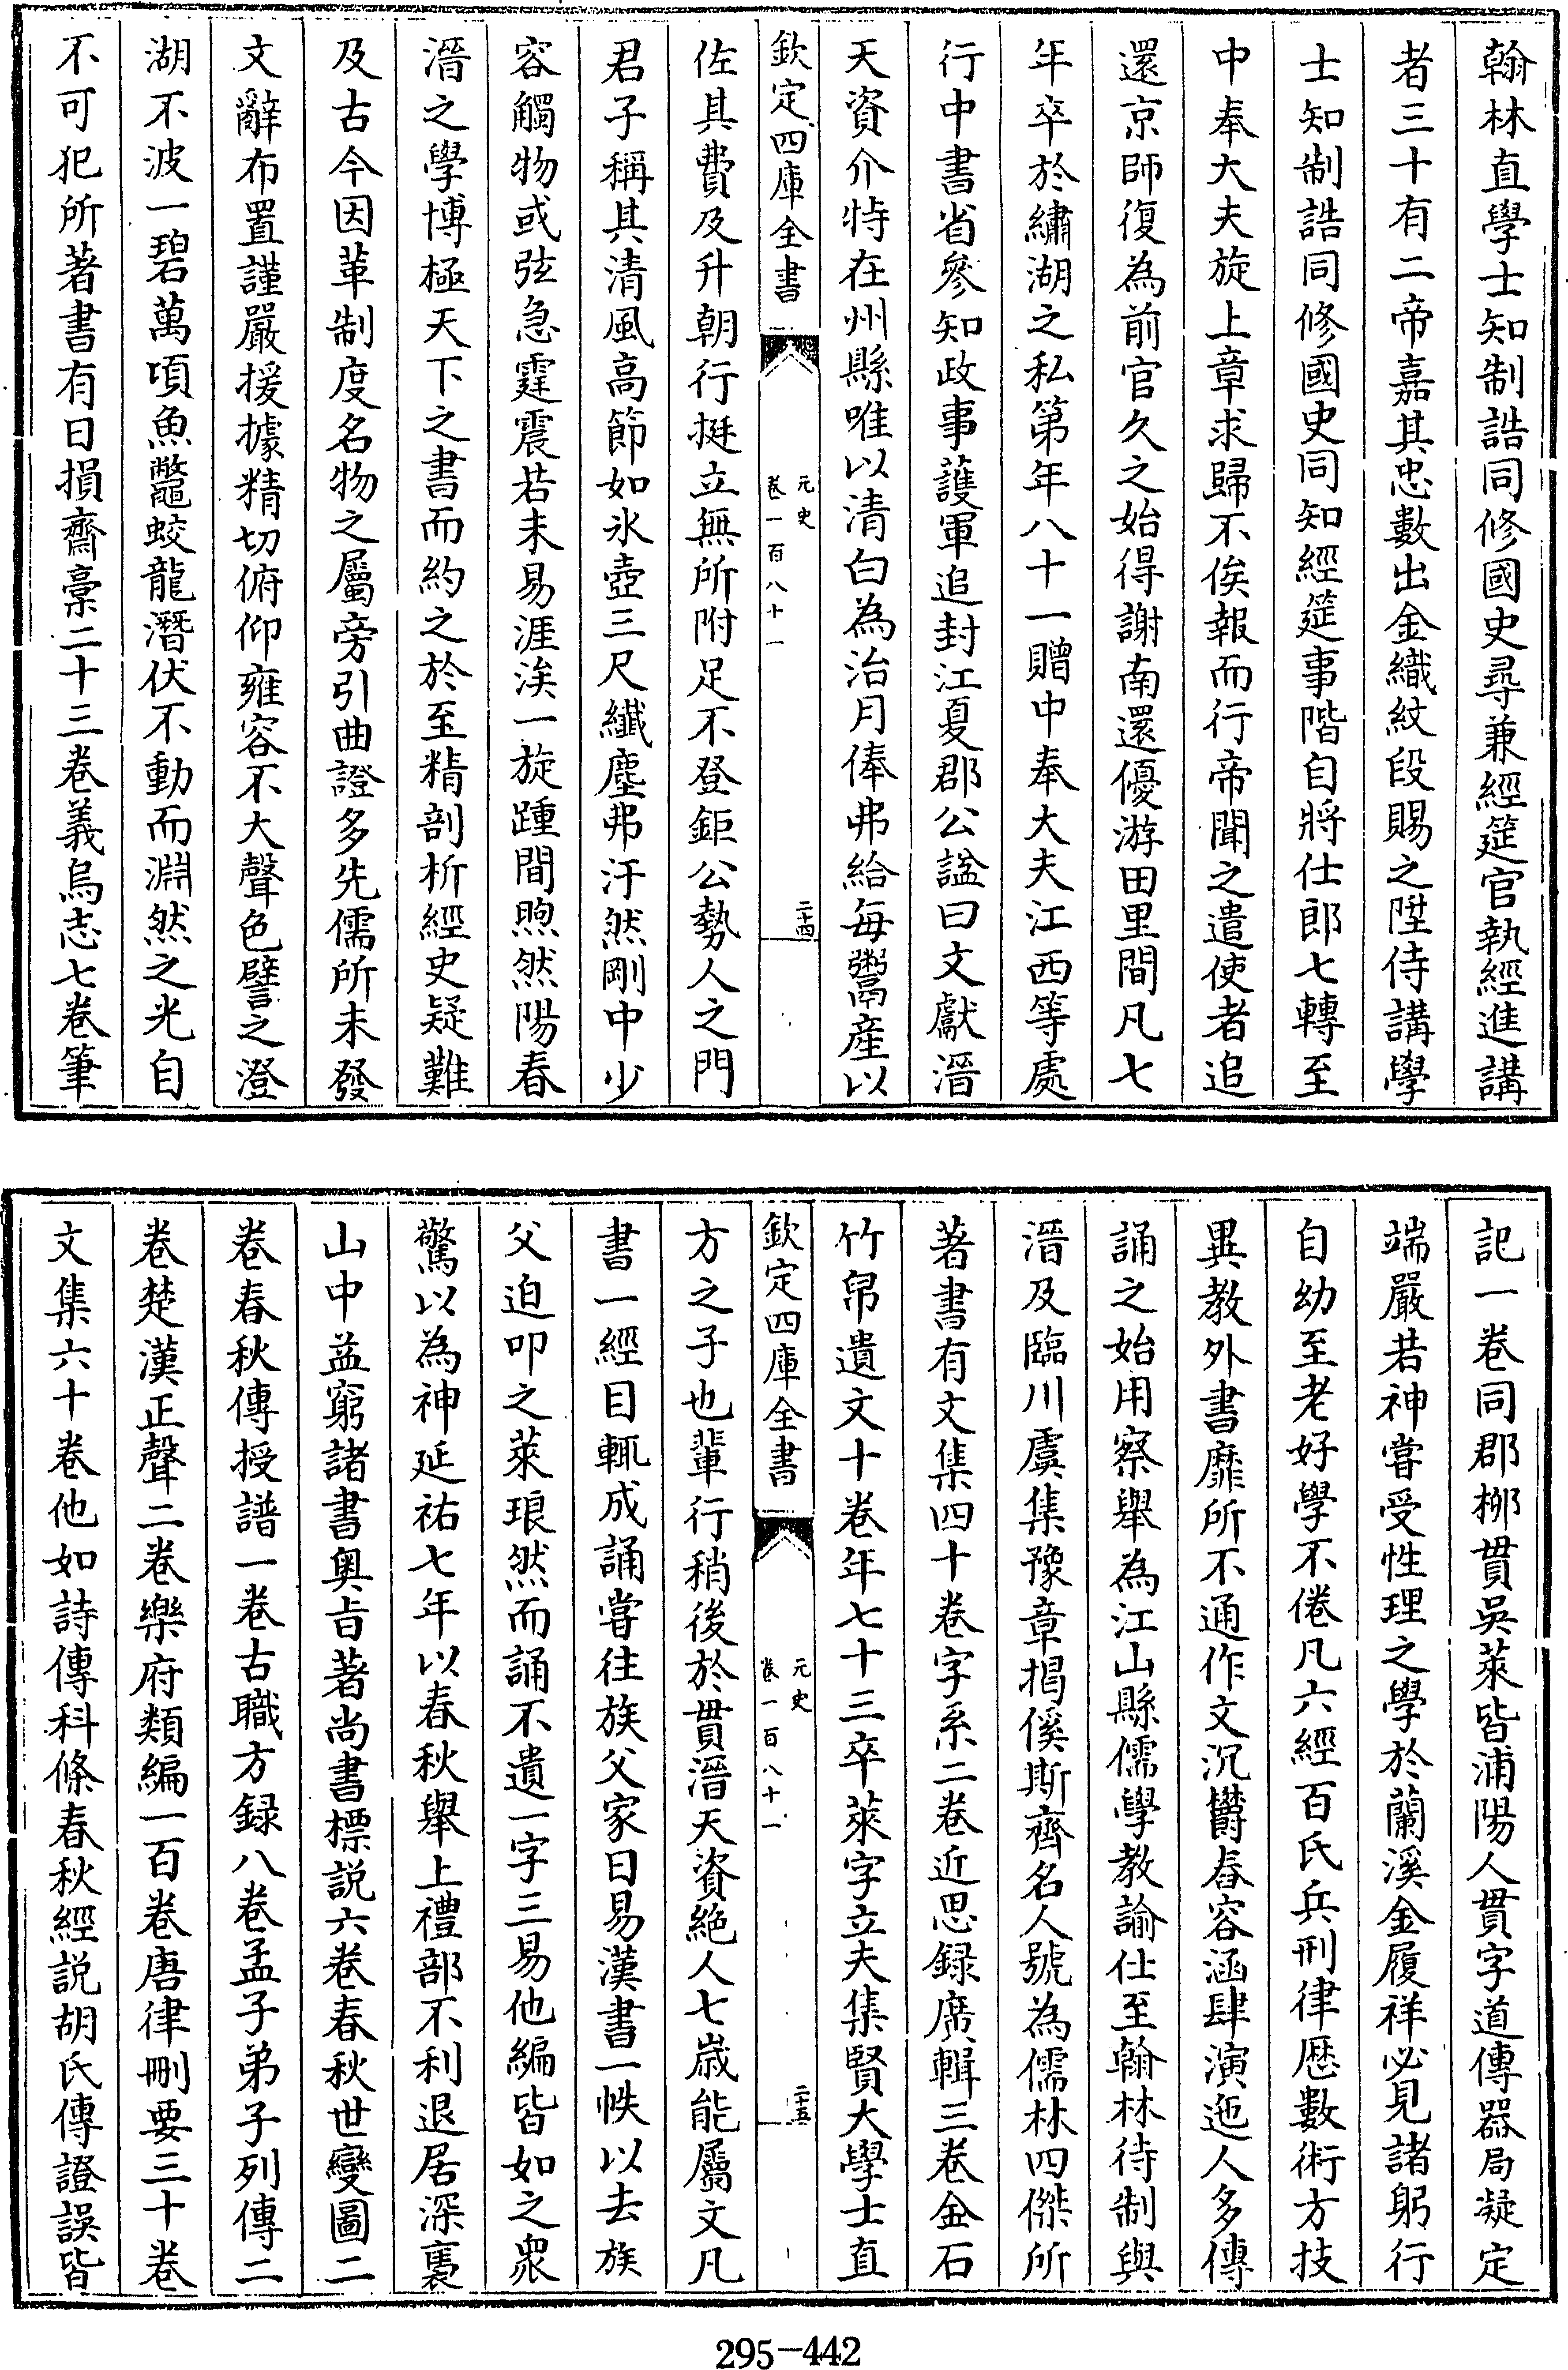 翰林直學士知制誥同修國史尋兼經筵官執經進講
者三十有二帝嘉其忠數出金織紋段賜之陞侍講學
士知制誥同修國史同知經筵事階自將仕郎七轉至
中奉大夫旋上章求歸不俟報而行帝聞之遣使者追
還京師復為前官久之始得謝南還優游田里間凡七
年卒於繡湖之私第年八十一贈中奉大夫江西等處
行中書省參知政事護軍追封江夏郡公諡曰文獻溍
天資介特在州縣唯以清白為治月俸弗給每鬻產以
欽定四庫全書
元史
卷一百八十一
二十四
佐其費及升朝行挺立無所附足不登鉅公勢人之門
君子稱其清風高節如氷壺三尺纖塵弗汙然剛中少
容觸物或弦急霆震若未易涯涘一旋踵間煦然陽春
溍之學博極天下之書而約之於至精剖析經史疑難
及古今因革制度名物之屬旁引曲證多先儒所未發
文辭布置謹嚴援據精切俯仰雍容不大聲色譬之澄
湖不波一碧萬頃魚鼈蛟龍潛伏不動而淵然之光自
不可犯所著書有日損齋稾二十三卷義烏志七卷筆
記一卷同郡栁貫吳萊皆浦陽人貫字道傳器局凝定
端嚴若神嘗受性理之學於蘭溪金履祥必見諸躬行
自幼至老好學不倦凡六經百氏兵刑律厯數術方技
異教外書靡所不通作文沉欝舂容涵肆演迤人多傳
誦之始用察舉為江山縣儒學教諭仕至翰林待制與
溍及臨川虞集豫章揭傒斯齊名人號為儒林四傑所
著書有文集四十卷字系二卷近思録廣輯三卷金石
竹帛遺文十卷年七十三卒萊字立夫集賢大學士直
欽定四庫全書
元史
卷一百八十一
二十五
方之子也輩行稍後於貫溍天資絶人七嵗能屬文凡
書一經目輒成誦嘗往族父家日易漢書一帙以去族
父迫叩之萊琅然而誦不遺一字三易他編皆如之衆
驚以為神延祐七年以春秋舉上禮部不利退居深裏
山中益窮諸書奥㫖著尚書標説六卷春秋世變圖二
卷春秋傳授譜一卷古職方録八卷孟子弟子列傳二
卷楚漢正聲二卷樂府類編一百卷唐律刪要三十卷
文集六十卷他如詩傳科條春秋經説胡氏傳證誤皆
295-442